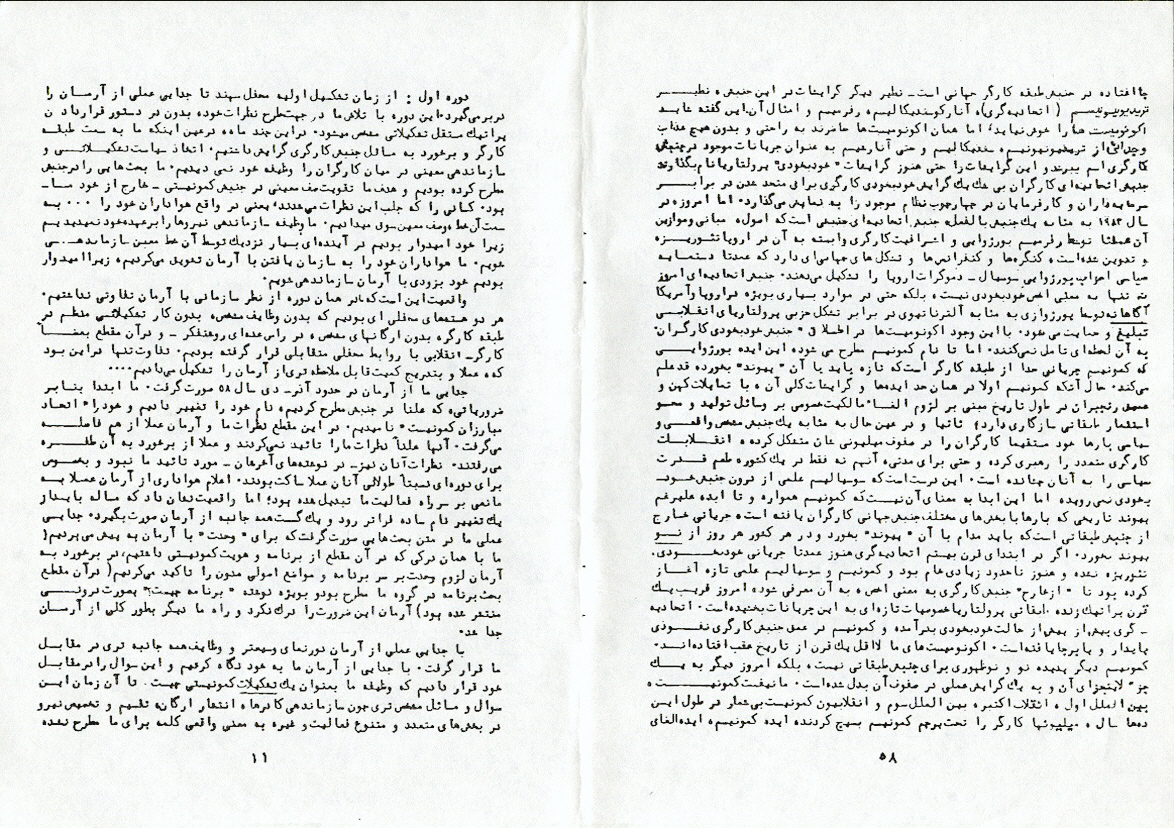 جا افتاده در جنبش طبقه کارگر جهانی است ـ نظیر دیگر گرایشات در این جنبش، نظیر
تریدیونیونیسم (اتحادیه‌گری)، آنارکوسندیکالیسم، رفرمیسم و امثال آن. این گفته شاید
اکونومیست‌ها را خوش نیاید؛ اما همان اکونومیست‌ها حاضرند به راحتی و بدون هیچ عذاب
وجدانی از تریدیونیونیسم، سندیکالیسم و حتی آنارشیسم به عنوان جریانات موجود در جنبش
کارگری اسم ببرند و این گرایشات را حتی هنوز گرایشات "خودبخودی" پرولتاریا نام بگذارند
جنبش اتحادیه‌ای کارگران بی شک یک گرایش خودبخودی کارگری برای متحد شدن در برابر
سرمایه‌داران و کارفرمایان در چهارچوب نظام موجود را به نمایش می‌گذارد. اما امروزه در
سال ۱۹۸۳ به مثابه یک جنبش بالفعل، جنبش اتحادیه‌ای جنبشی است که اصول، مبانی و موازین
آن عملتا توسط رفرمیسم بورژوایی و اشرافیت کارگری وابسته به آن در اروپا تئوریزه
و تدوین شده است، کنگره‌ها و کنفرانس‌ها و تشکل‌های جهانی‌ای دارد که عمدتا دستمایه
سیاسی احزاب بورژوایی سوسیال ـ دموکرات اروپا را تشکیل می‌دهند. جنبش اتحادیه‌ای امروز
نه تنها به معنی اخص خودبخودی نیست، بلکه حتی در موارد بسیاری بویژه در اروپا و آمریکا
آگاهانه توسط بورژوازی به مثابه آلترناتیوی در برابر تشکل حزبی پرولتاریای انقلابی
تبلیغ و حمایت می‌شود. با این وجود اکونومیست‌ها در اطلاق "جنبش خودبخودی کارگران"
به آن لحظه‌ای تامل نمی‌کنند. اما تا نام کمونیسم مطرح می شود، این ایده بورژوایی
که کمونیسم جریانی جدا از طبقه کارگر است که تازه باید با آن "پیوند" بخورد، قد علم
می‌کند. حال آنکه کمونیسم اولا در همان حد ایده‌ها و گرایشات کلی آن، با تمایلات کهن و
عمیق رنجبران در طول تاریخ مبنی بر لزوم الغا، مالکیت خصوصی بر وسائل تولید و محو
استثمار طبقاتی سازگاری دارد؛ ثانیا و در عین حال به مثابه یک جنبش مشخص واقعی و
سیاسی بارها خود مستقیما کارگران را در صفوف میلیونی شان متشکل کرده، انقلابات
کارگری متعدد را رهبری کرده و حتی برای مدتی، آنهم نه فقط در یک کشور، طعم قدرت
سیاسی را به آنان چشانده است. این درست است که سوسیالیسم علمی از درون جنبش خود‌
بخودی نمی‌رویده اما این ابدا به معنای آن نیست که کمونیسم همواره و تا ابد، علیرغم
پیوند تاریخی که بارها با بخش‌های مختلف جنبش جهانی کارگران یافته است، جریانی خارج
از جنبش طبقاتی است که باید مدام با آن "پیوند" بخورد و در هر کشور هر روز از نو
پیوند بخورد. اگر در ابتدای قرن بیستم اتحادیه‌گری هنوز عمدتا جریانی خودبخودی،
تئوریزه نشده و هنوز تا حدود زیادی خام بود و کمونیسم و سوسیالیسم علمی تازه آغاز
کرده بود تا "از خارج" جنبش کارگری به معنی اخص، به آن معرفی شود، امروز قریب یک
قرن پراتیک زنده طبقاتی پرولتاریا خصوصیات تازه‌ای به این جریانات بخشیده است. اتحادیه
ـ گری بیش از پیش از حالت خودبخودی بدر آمده و کمونیسم در عمق جنبش کارگری نفوذی
پایدار و پابرجا یافته است. اکونومیست‌های ما لااقل یک قرن از تاریخ عقب افتاده‌اند.
کمونیسم دیگر پدیده نو و نوظهوری برای جنبش طبقاتی نیست، بلکه امروز دیگر به یک
جز، لایتجزای آن و به یک گرایش عملی در صفوف آن بدل شده است. مانیفست کمونیست،
بین‌الملل اول، انقلاب اکتبر، بین الملل سوم و انقلابیون کمونیست بی‌شمار در طول این
ده‌ها سال، میلیونها کارگر را تحت پرچم کمونیسم بسیج کردند، ایده کمونیسم، ایده الغای
۵۸
دوره اول : از زمان تشکیل اولیه محفل سهند تا جدایی عملی از آرمان را
دربر می‌گیرد. این دوره با تلاش ما در جهت طرح نظرات خود، بدون در دستور قرار دادن
پراتیک مستقل تشکیلاتی مشخص میشود. در این چند ماه، در عین اینکه ما به سمت طبقه
کارگر و برخورد به مسائل جنبش کارگری گرایش داشتیم. اتخاذ سیاست تشکیلاتی و
سازماندهی معینی در میان کارگران را وظیفه خود نمی دیدیم. ما بحث‌هایی را در جنبش
مطرح کرده بودیم و هدف ما تقویت صف معینی در جنبش کمونیستی ـ خارج از خود ما ـ
بود. کسانی را که جلب این نظرات می‌شدند، یعنی در واقع هواداران خود را ۰۰۰ به
سمت آن خط، وصف معین سوق میدادیم. ما وظیفه سازماندهی نیروها را برعهده خود نمیدیدیم
زیرا خود امیدوار بودیم در آینده‌ای بسیار نزدیک توسط آن خط معین سازماندهی
شویم. ما هواداران خود را به سازمان یافتن با آرمان تشویق می‌کردیم، زیرا امیدوار
بودیم خود بزودی با آرمان سازماندهی شویم.
واقعیت این است که ما در همان دوره از نظر سازمانی با آرمان تفاوتی نداشتیم.
هر دو هسته‌های محفلی ای بودیم که بدون وظایف مشخص، بدون کار تشکیلاتی منظم در
طبقه کارگر، بدون ارگانهای مشخص، در راس عده‌ای روشنفکر ـ و در آن مقطع بعضاً
کارگر ـ انقلابی با روابط محفلی متقابلی قرار گرفته بودیم. تفاوت تنها در این بود
که، عملا و بتدریج کمیت قابل ملاحظه تری از آرمان را تشکیل می‌دادیم....
جدایی ما از آرمان در حدود آذر ـ دی سال ۵۸ صورت گرفت. ما ابتدا بنابر
ضروریاتی، که علنا در جنبش مطرح کردیم، نام خود را تغییر دادیم و خود را "اتحاد
مبارزان کمونیست" نامیدیم. در این مقطع نظرات ما و آرمان عملا از هم فاصله
می‌گرفت. آنها علناً نظرات ما را تائید نمی‌کردند و عملا از برخورد به آن طفره
می‌رفتند. نظرات آنان نیز ـ در نوشته‌های آخرشان ـ مورد تائید ما نبود و بخصوص
برای دوره‌ای نسبتاً طولانی آنان عملا ساکت بودند. اعلام هواداری از آرمان عملا به
مانعی بر سر راه فعالیت ما تبدیل شده بود؛ اما واقعیت نشان داد که مساله باید از
یک تغییر نام ساده فراتر رود و یک گسست همه جانبه از آرمان صورت بگیرد. جدایی
عملی ما در متن بحث‌هایی صورت گرفت که برای "وحدت" با آرمان به پیش می‌بردیم؛
ما با همان درکی که در آن مقطع از برنامه و هویت کمونیستی داشتیم، در برخورد به
آرمان لزوم وحدت بر سر برنامه و مواضع اصولی مدون را تاکید می‌کردیم (در آن مقطع
بحث برنامه در گروه ما مطرح بود و بویژه نوشته "برنامه چیست؟" بصورت درونی
منتشر شده بود) آرمان این ضرورت را درک نکرد و راه ما دیگر بطور کلی از آرمان
جدا شد.
با جدایی عملی از آرمان دورنمای وسیعتر و وظایف همه جانبه تری در مقابل
ما قرار گرفت. با جدایی از آرمان ما به خود نگاه کردیم و این سوال را در مقابل
خود قرار دادیم که وظیفه ما بعنوان یک تشکیلات کمونیستی چیست. تا آن زمان این
سوال و مسائل مشخص تری چون سازماندهی کادرها، انتشار ارگان، تقسیم و تخصیص نیرو
در بخش‌های متعدد و متنوع فعالیت و غیره به معنی واقعی کلمه برای ما مطرح نشده
۱۱